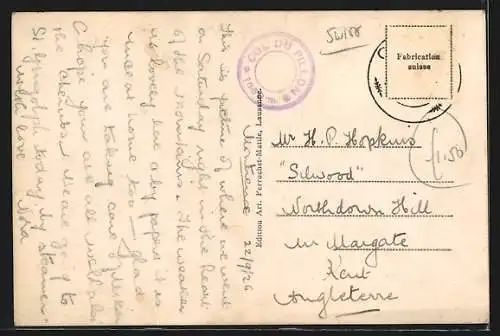 Montreux 22/9/26
This is picture of where we went
on Saturday night in the heart
of the mountains. The weather
is lovely here & by papers it is
nice at home too — glad
you are taking care of
& hope you are all well also
the We are going to
St. Gingolph today by steamer.
with love
Nora
SW/88
COL DU PILLON
Fabrication
suisse
Edition Art. Perrochet-Matile, Lausanne.
£1.50
Mr H. P. Hopkins
"Silwood"
Northdown Hill
Nr Margate
Kent
Angleterre